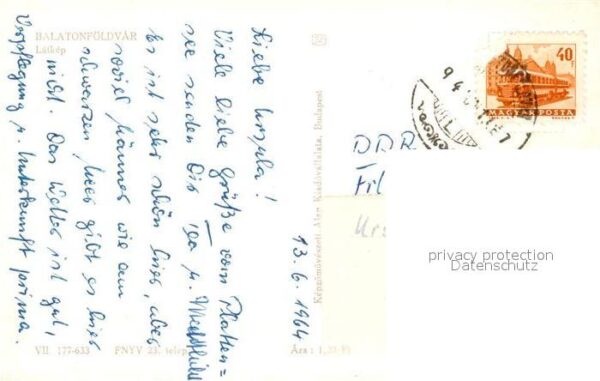 BALATONFÖLDVÁR
Látkép
13.6.1964
Liebe Ursula!
Viele liebe Grüße vom Platten=
see senden Dir
Es ist sehr schön hier, aber
soviel Männer wie am
schwarzen Meer gibt es hier
nicht. Das Wetter ist gut,
Verpflegung u. Unterkunft prima.
VII. 177-633 FNYV 23. telep
Ára: 1,20 Ft
Képzőművészeti Alap Kiadóvállalata, Budapest
40 f
MAGYAR POSTA
DDR
Frl
privacy protection
Datenschutz